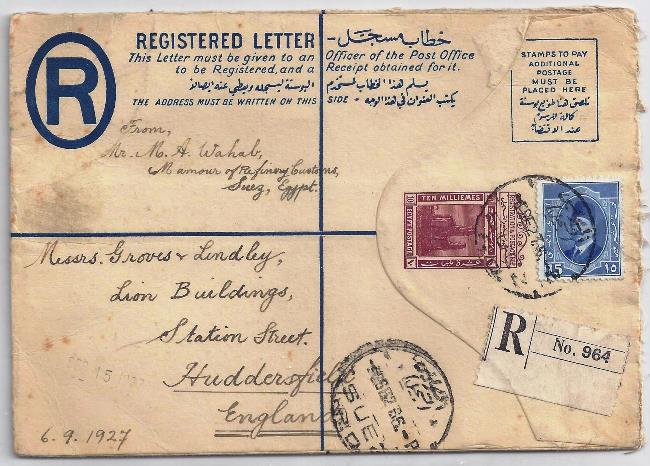 R
REGISTERED LETTER
خطاب مسجل
This Letter must be given to an Officer of the Post Office
to be Registered, and a Receipt obtained for it.
يسلم هذا الخطاب لمستخدم
البوستة ليسجله ويعطي عنه ايصالا
THE ADDRESS MUST BE WRITTEN ON THIS SIDE
يكتب العنوان في هذا الوجه
STAMPS TO PAY
ADDITIONAL
POSTAGE
MUST BE
PLACED HERE
From,
Mr. M. A. Wahab,
Mamour of Refinery Customs,
Suez, Egypt.
TEN MILLIEMES
EGYPT POSTAGE
10
15
١٥
Messrs. Groves & Lindley,
Lion Buildings,
Station Street.
Huddersfield
England
6.9.1927
R
No. 964
SUEZ